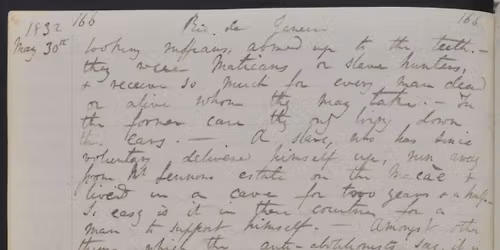 1832 166 Rio de Janeiro 166
May 30th looking ruffians armed up to the teeth. —
they were Maticans or slave hunters,
& receive so much for every man dead
or alive whom they may take. — In
the former case they only bring down
the ears. — A slave, who has since
voluntary delivered himself up, run away
from Mr Lennons estate on the Macaè &
lived in a cave for two years & a half.
So easy is it in these countries for a
man to support himself. — Amongst other
things which the anti-abolitionists say, it is